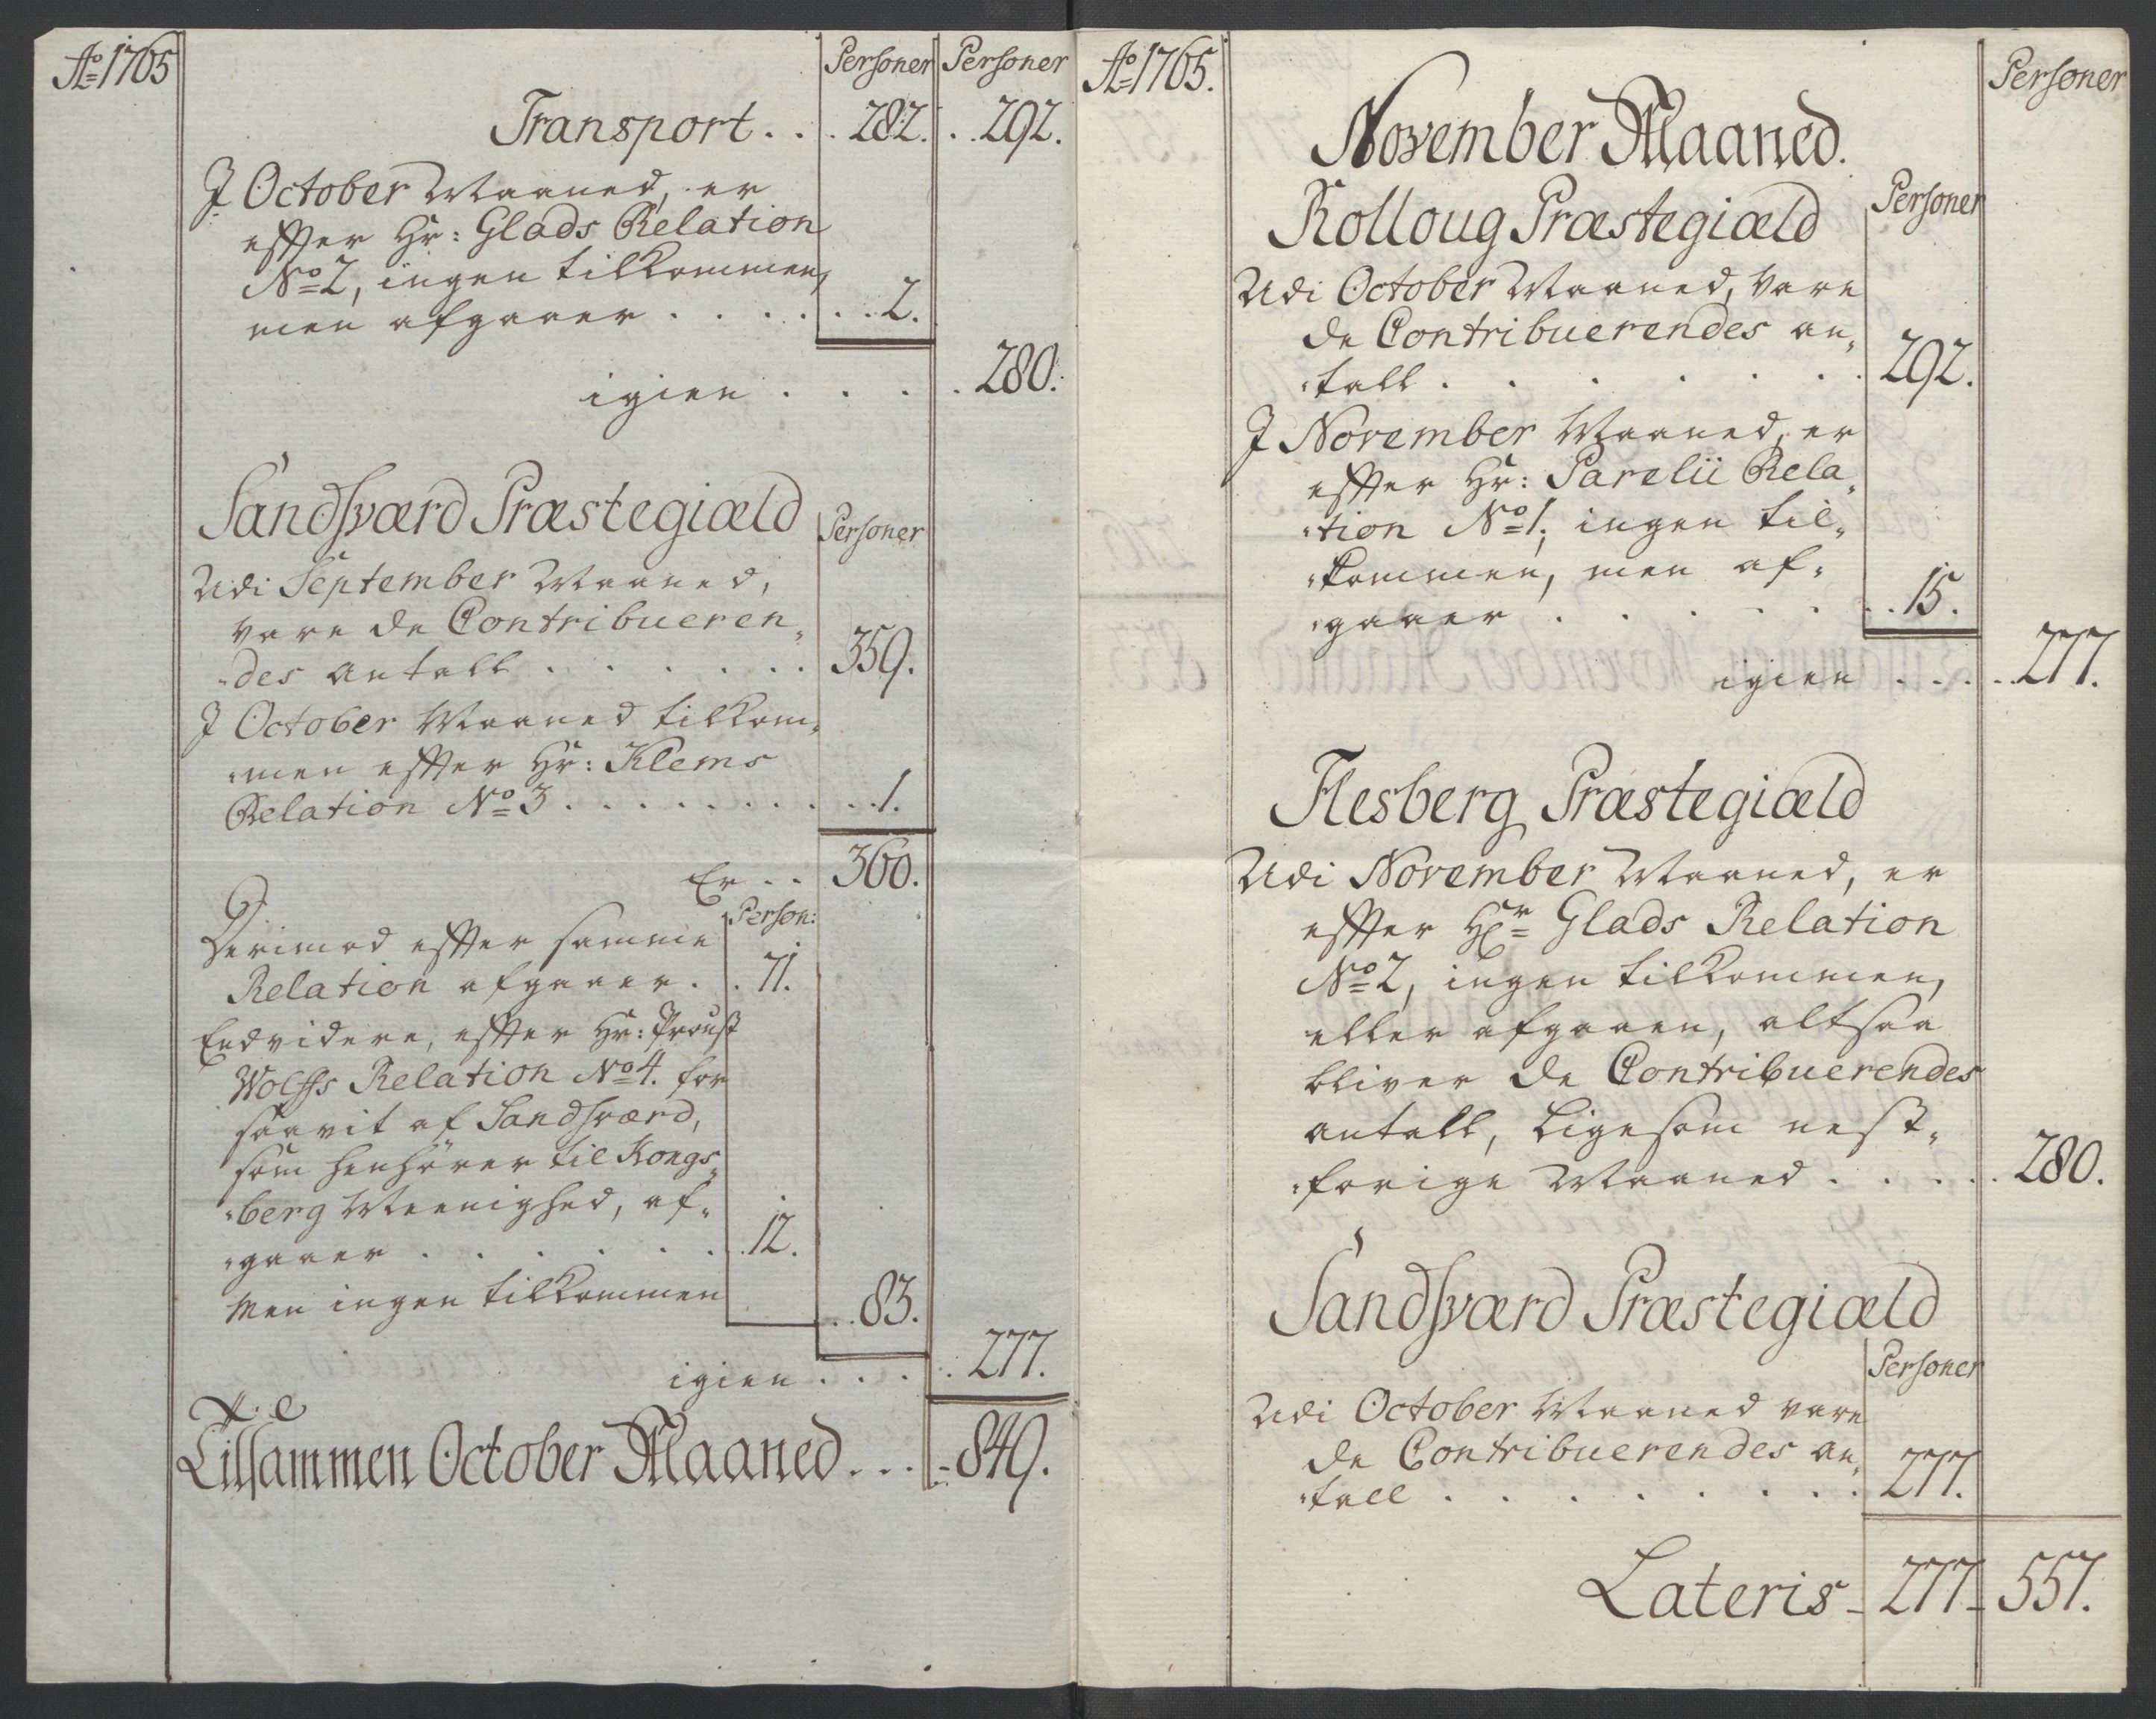 Ao 1765
Personer Personer
Transport . . . 282. . . 292.
I October Maaned, er
efter Hr: Glads Relation
No 2, ingen tilkommen,
men afgaaer . . . . . . . 2.
igien . . . . . 280.
Sandsværd Præstegiæld
Personer
Udi September Maaned,
vare de Contribueren-
-des antall . . . . . . 359.
I October Maaned tilkom-
-men efter Hr: Klems
Relation No 3 . . . . . . . . . 1.
Er . . 360.
Person:
Derimod efter samme
Relation afgaaer . . 71.
Endvidere, efter Hr: Provst
Wolffs Relation No 4. for
saavit af Sandsværd,
som henhører til Kongs-
-berg Meenighed, af-
-gaaer . . . . . . . 12.
Men ingen tilkommen
. . 83.
igien . . . . . 277.
Tilsammen October Maaned . . . - 849.
Ao 1765.
Personer
November Maaned.
Rolloug Præstegiæld
Personer
Udi October Maaned, vare
de Contribuerendes an-
-tall . . . . . . . 292.
I November Maaned, er
efter Hr: Parelii Rela-
-tion No 1, ingen til-
-kommen, men af-
-gaaer . . . . . . . 15.
igien . . . . . 277.
Flesberg Præstegiæld
Udi November Maaned, er
efter Hr Glads Relation
No 2, ingen tilkommen,
eller afgaaen, altsaa
bliver de Contribuerendes
antall, ligesom nest-
-forige Maaned . . . . . 280.
Sandsværd Præstegiæld
Personer
Udi October Maaned vare
de Contribuerendes an-
-tall . . . . . . . . 277.
Lateris - 277 - 557.